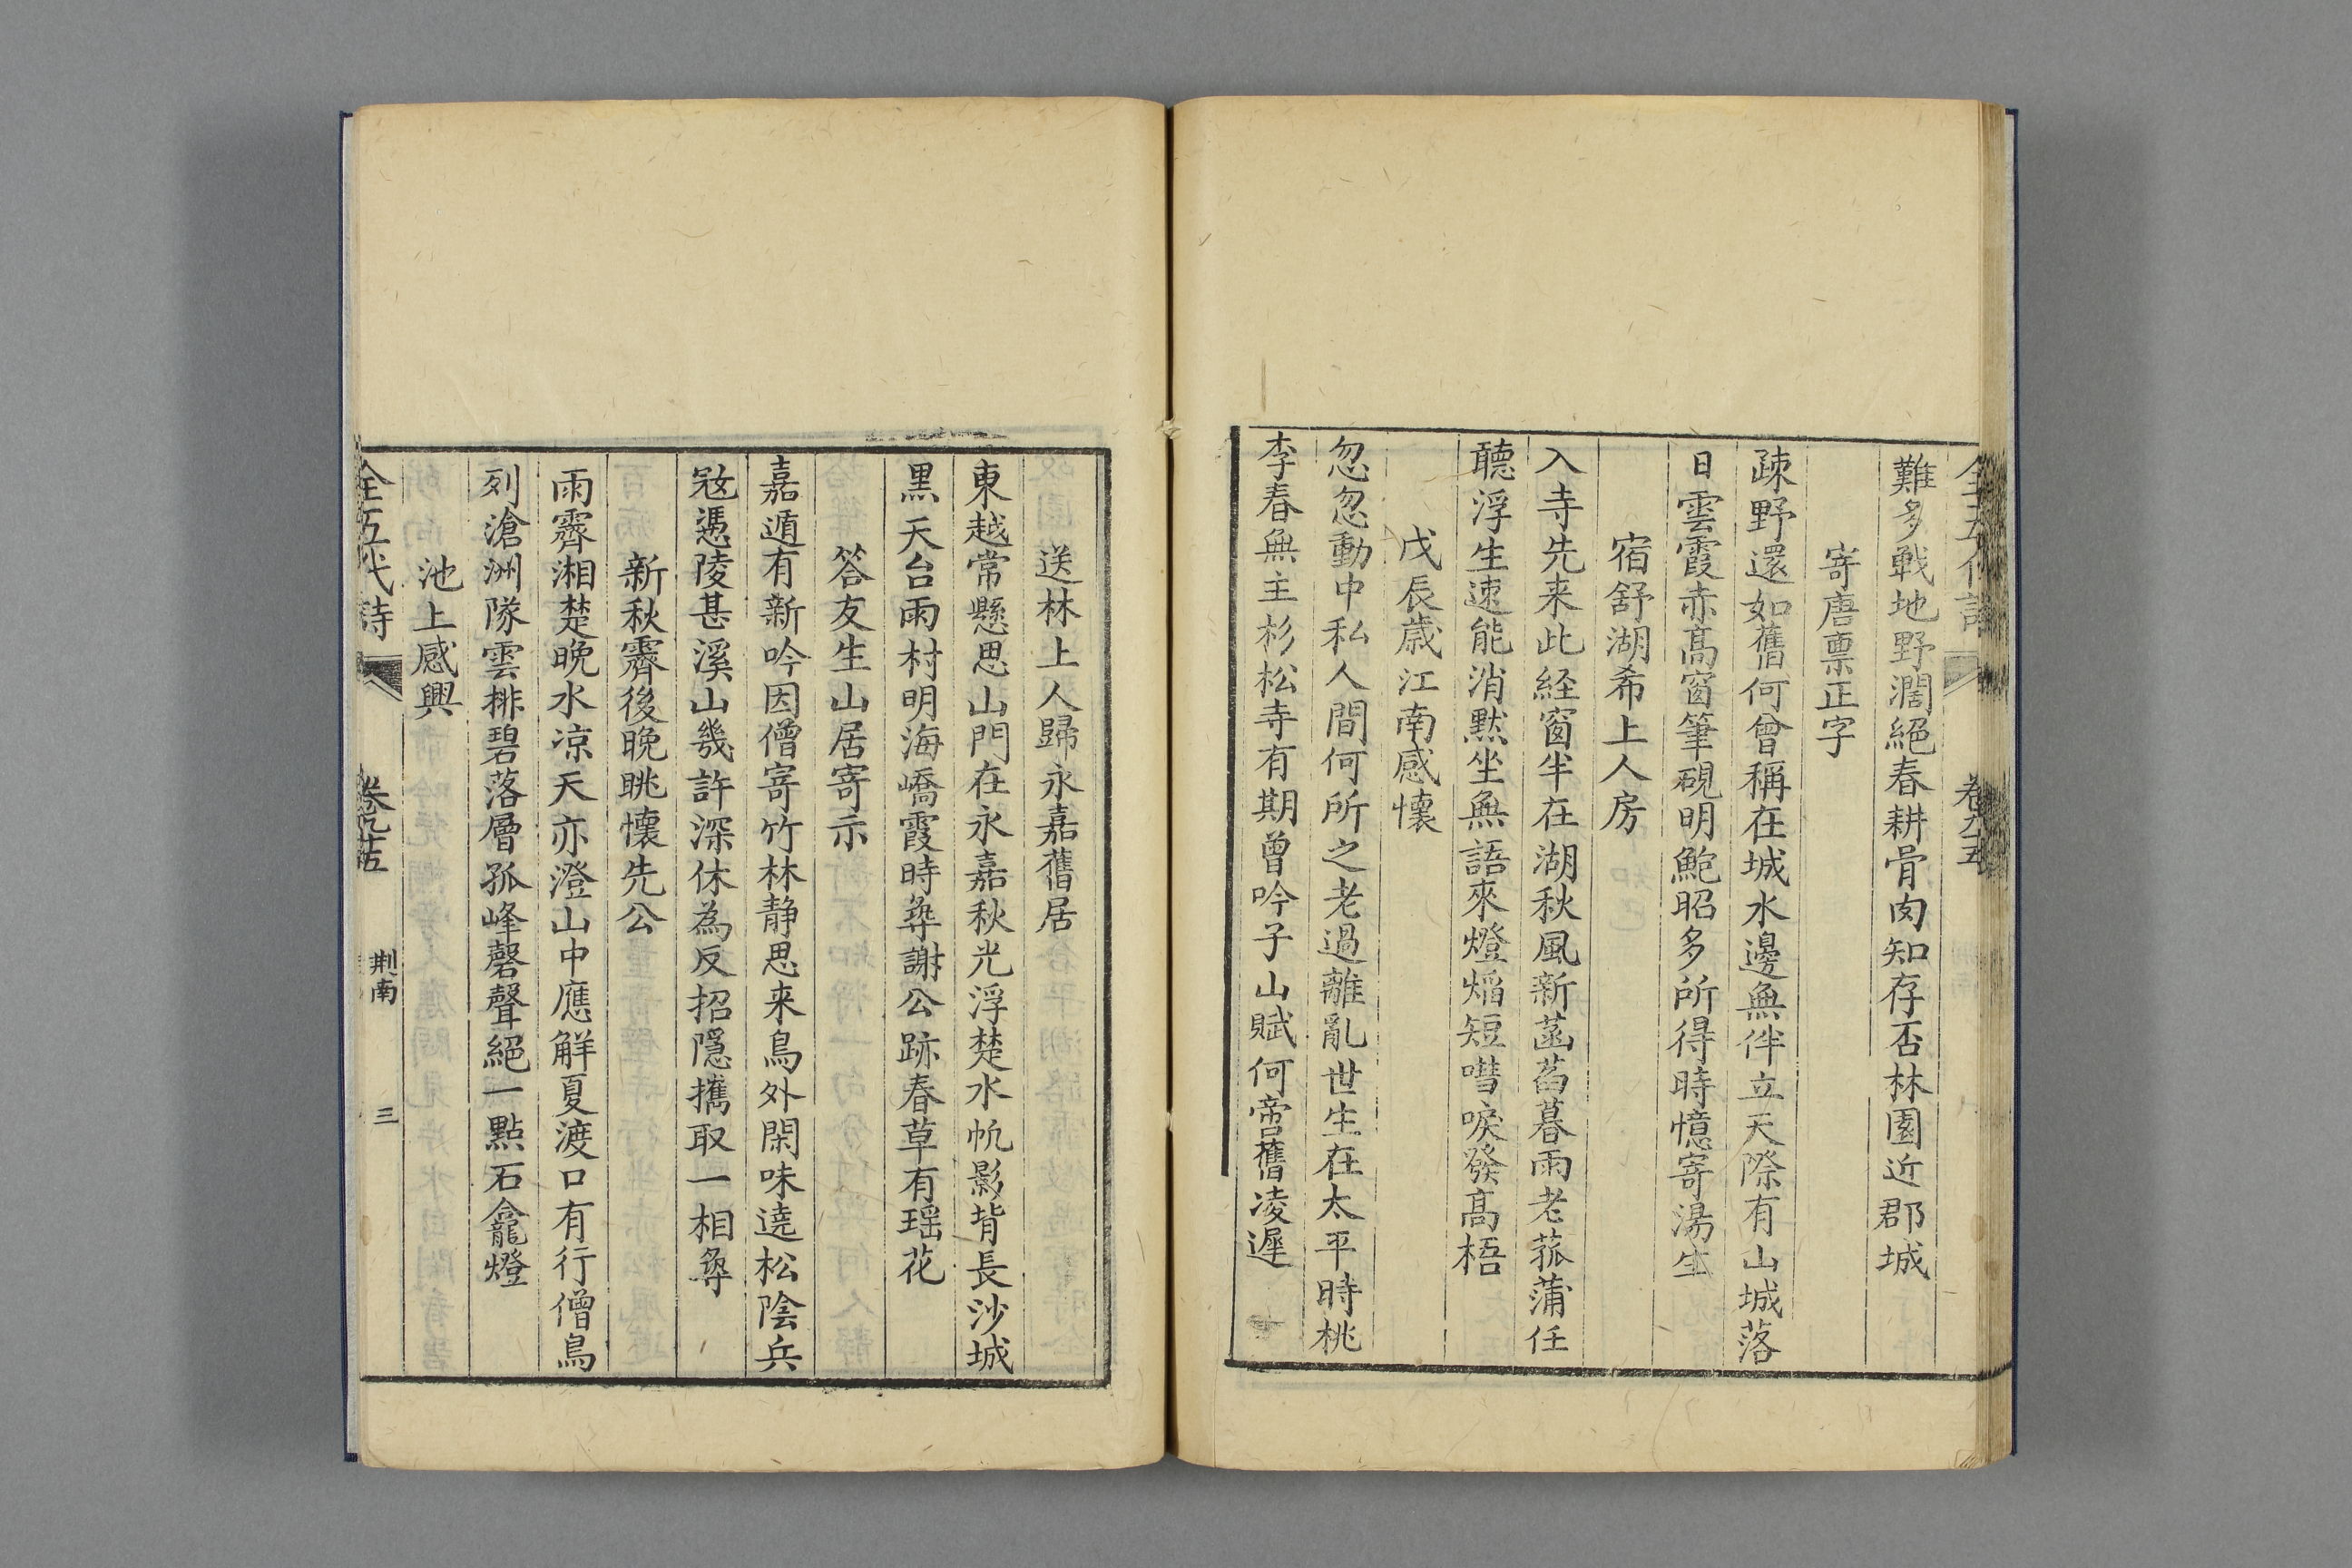 全五代詩 卷九十五
難多戰地野濶絕春耕骨肉知存否林園近郡城
寄唐禀正字
疎野還如舊何曾稱在城水邊無伴立天際有山城落
日雲霞赤髙窗筆硯明鮑昭多所得時憶寄湯生
宿舒湖希上人房
入寺先来此経窗半在湖秋風新菡萏暮雨老菰蒲任
聽浮生速能消黙坐無語來燈焰短喈唳發髙梧
戊辰歳江南感懷
忽忽動中私人間何所之老過離亂世生在太平時桃
李春無主杉松寺有期曾吟子山賦何啻舊凌遲
送林上人歸永嘉舊居
東越常懸思山門在永嘉秋光浮楚水帆影背長沙城
黒天台雨村明海嶠霞時尋謝公跡春草有瑶花
答友生山居寄示
嘉遁有新吟因僧寄竹林静思来鳥外閑味遶松陰兵
冦憑陵甚溪山幾許深休為反招隱攜取一相尋
新秋霽後晚眺懷先公
雨霽湘楚晚水凉天亦澄山中應解夏渡口有行僧鳥
列滄洲隊雲排碧落層孤峰磬聲絕一點石龕燈
池上感興
全五代詩 卷九十五 荆南 三